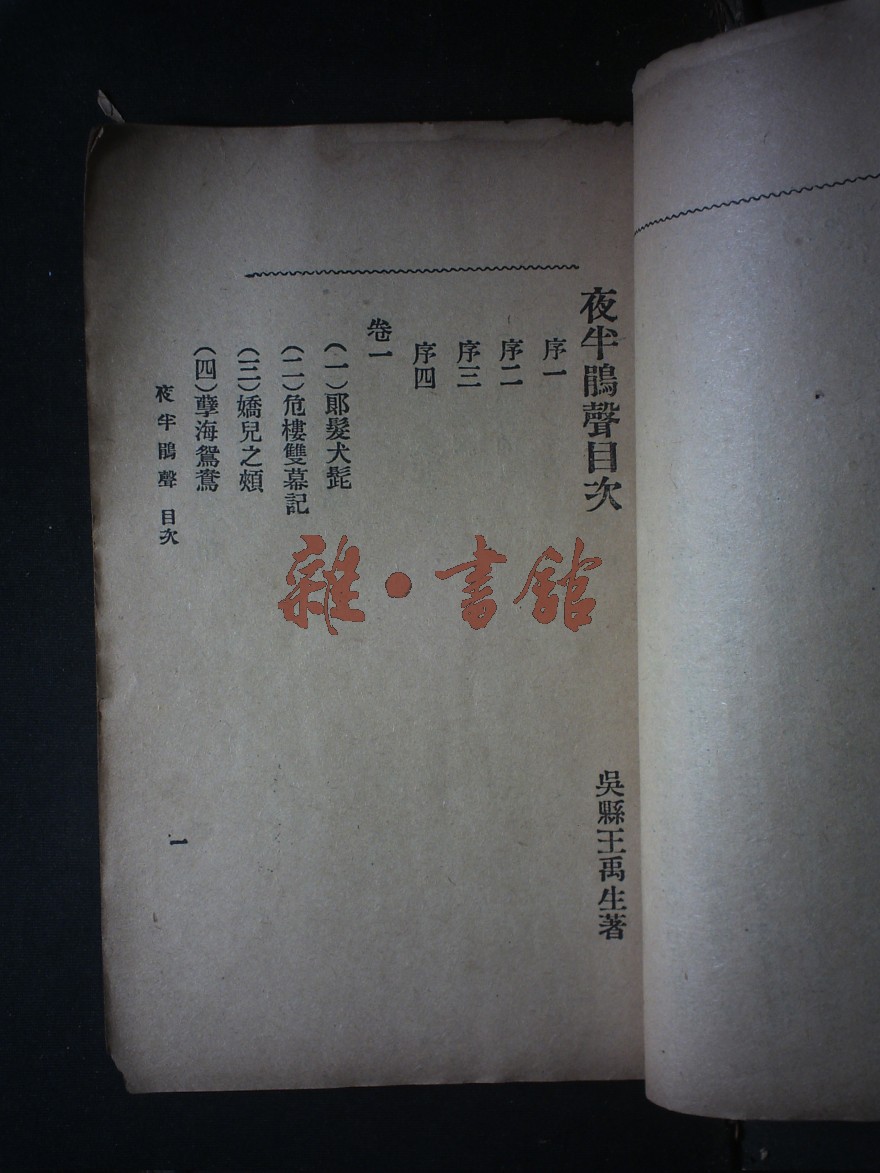 夜半鵑聲目次
吳縣王禹生著
序一
序二
序三
序四
卷一
(一)郎髮犬髭
(二)危樓雙墓記
(三)嬌兒之頰
(四)孽海鴛鴦
夜半鵑聲 目次
一
雜·書館